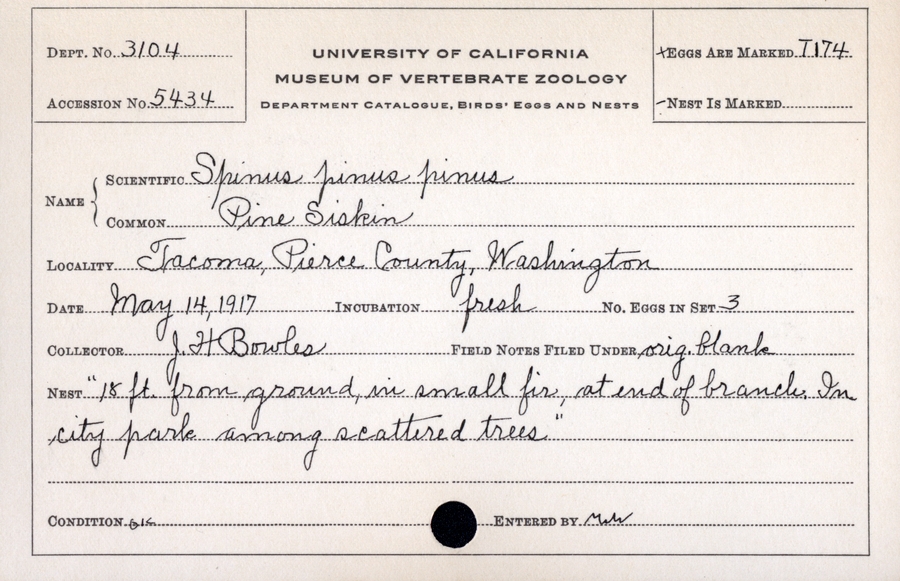 DEPT. No. 3104
ACCESSION No. 5434
UNIVERSITY OF CALIFORNIA
MUSEUM OF VERTEBRATE ZOOLOGY
DEPARTMENT CATALOGUE, BIRDS' EGGS AND NESTS
+EGGS ARE MARKED T174
-NEST IS MARKED
NAME { SCIENTIFIC Spinus pinus pinus
COMMON Pine Siskin
LOCALITY Tacoma, Pierce County, Washington
DATE May 14, 1917 INCUBATION fresh No. EGGS IN SET 3
COLLECTOR J. H Bowles FIELD NOTES FILED UNDER orig. blank
NEST "18 ft. from ground, in small fir, at end of branch. In
city park among scattered trees."
CONDITION ok ENTERED BY